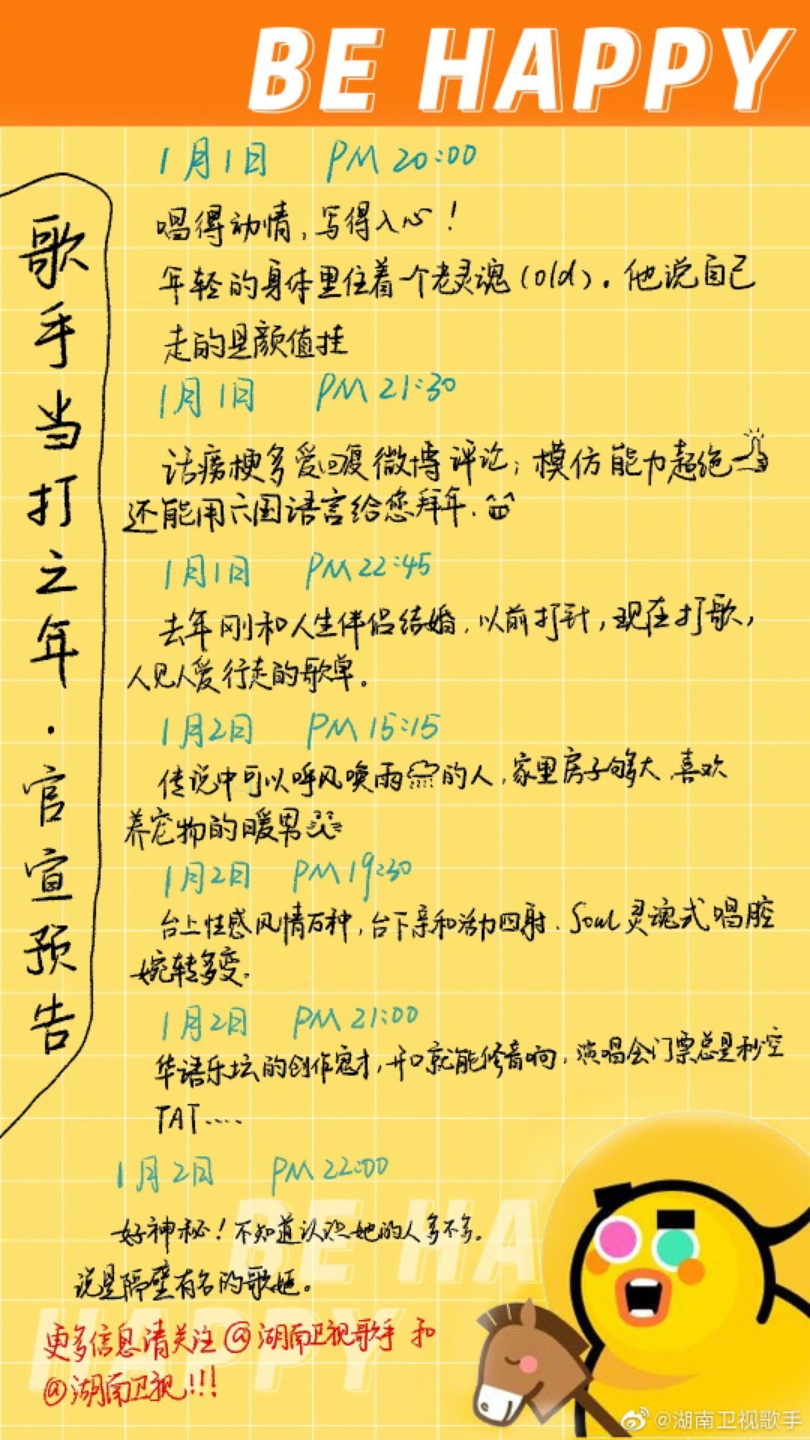 BE HAPPY
歌手当打之年·官宣预告
1月1日 PM 20:00
唱得动情,写得入心!
年轻的身体里住着一个老灵魂(old)。他说自己
走的是颜值挂
1月1日 PM 21:30
话痨梗多爱回复微博评论;模仿能力超绝
还能用六国语言给您拜年.
1月1日 PM 22:45
去年刚和人生伴侣结婚,以前打针,现在打歌,
人见人爱行走的歌单。
1月2日 PM 15:15
传说中可以呼风唤雨的人,家里房子够大,喜欢
养宠物的暖男
1月2日 PM 19:30
台上性感风情万种,台下亲和活力四射.Soul灵魂式唱腔
婉转多变.
1月2日 PM 21:00
华语乐坛的创作鬼才,开口就能修音响,演唱会门票总是秒空
TAT....
1月2日 PM 22:00
好神秘!不知道认识她的人多不多。
说是隔壁有名的歌姬。
更多信息请关注@湖南卫视歌手 和
@湖南卫视!!!
BE HA
HAPPY
@湖南卫视歌手